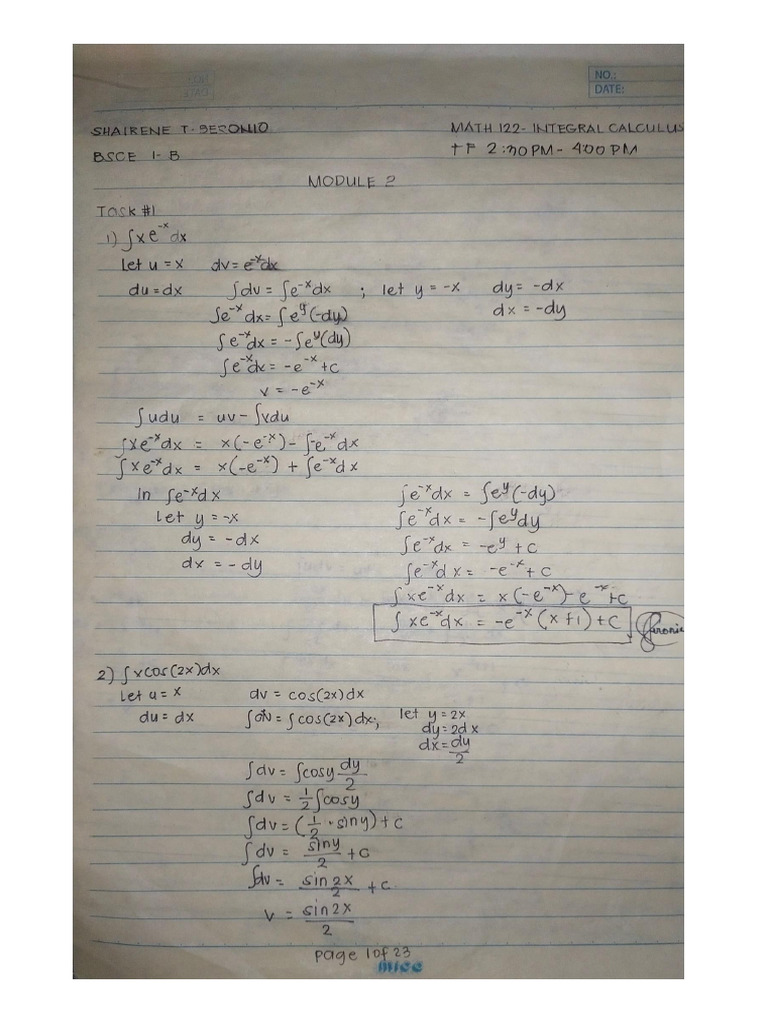 NO.:
DATE:
SHAIRENE T. BERONIO MATH 122- INTEGRAL CALCULUS
BSCE 1- B TF 2:30 PM - 4:00 PM
MODULE 2
Task #1
1) ∫xe^-x dx
Let u = x dv = e^-x dx
du = dx ∫dv = ∫e^-x dx ; let y = -x dy = -dx
∫e^-x dx = ∫e^y(-dy) dx = -dy
∫e^-x dx = -∫e^y(dy)
∫e^-x dx = -e^-x + c
v = -e^-x
∫udu = uv - ∫vdu
∫xe^-x dx = x(-e^-x) - ∫-e^-x dx
∫xe^-x dx = x(-e^-x) + ∫e^-x dx
In ∫e^-x dx ∫e^-x dx = ∫e^y(-dy)
Let y = -x ∫e^-x dx = -∫e^y dy
dy = -dx ∫e^-x dx = -e^y + c
dx = -dy ∫e^-x dx = -e^-x + c
∫xe^-x dx = x(-e^-x) - e^-x + c
∫xe^-x dx = -e^-x (x+1) + c
2) ∫xcos(2x)dx
Let u = x dv = cos(2x)dx
du = dx ∫dv = ∫cos(2x)dx; let y = 2x
dy = 2dx
dx = dy/2
∫dv = ∫cosy dy/2
∫dv = 1/2 ∫cosy
∫dv = (1/2 · siny) + c
∫dv = siny/2 + c
∫dv = sin2x/2 + c.
v = sin2x/2
page 1 of 23